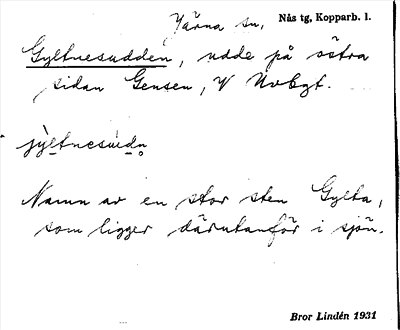 Järna sn. Nås tg, Kopparb. l.
Gyltnesudden, udde på östra
sidan Gensen, V
jy̱ltnesu̱dn̥
Namn av en stor sten Gylta,
som ligger därutanför i sjön.
Bror Lindén 1931